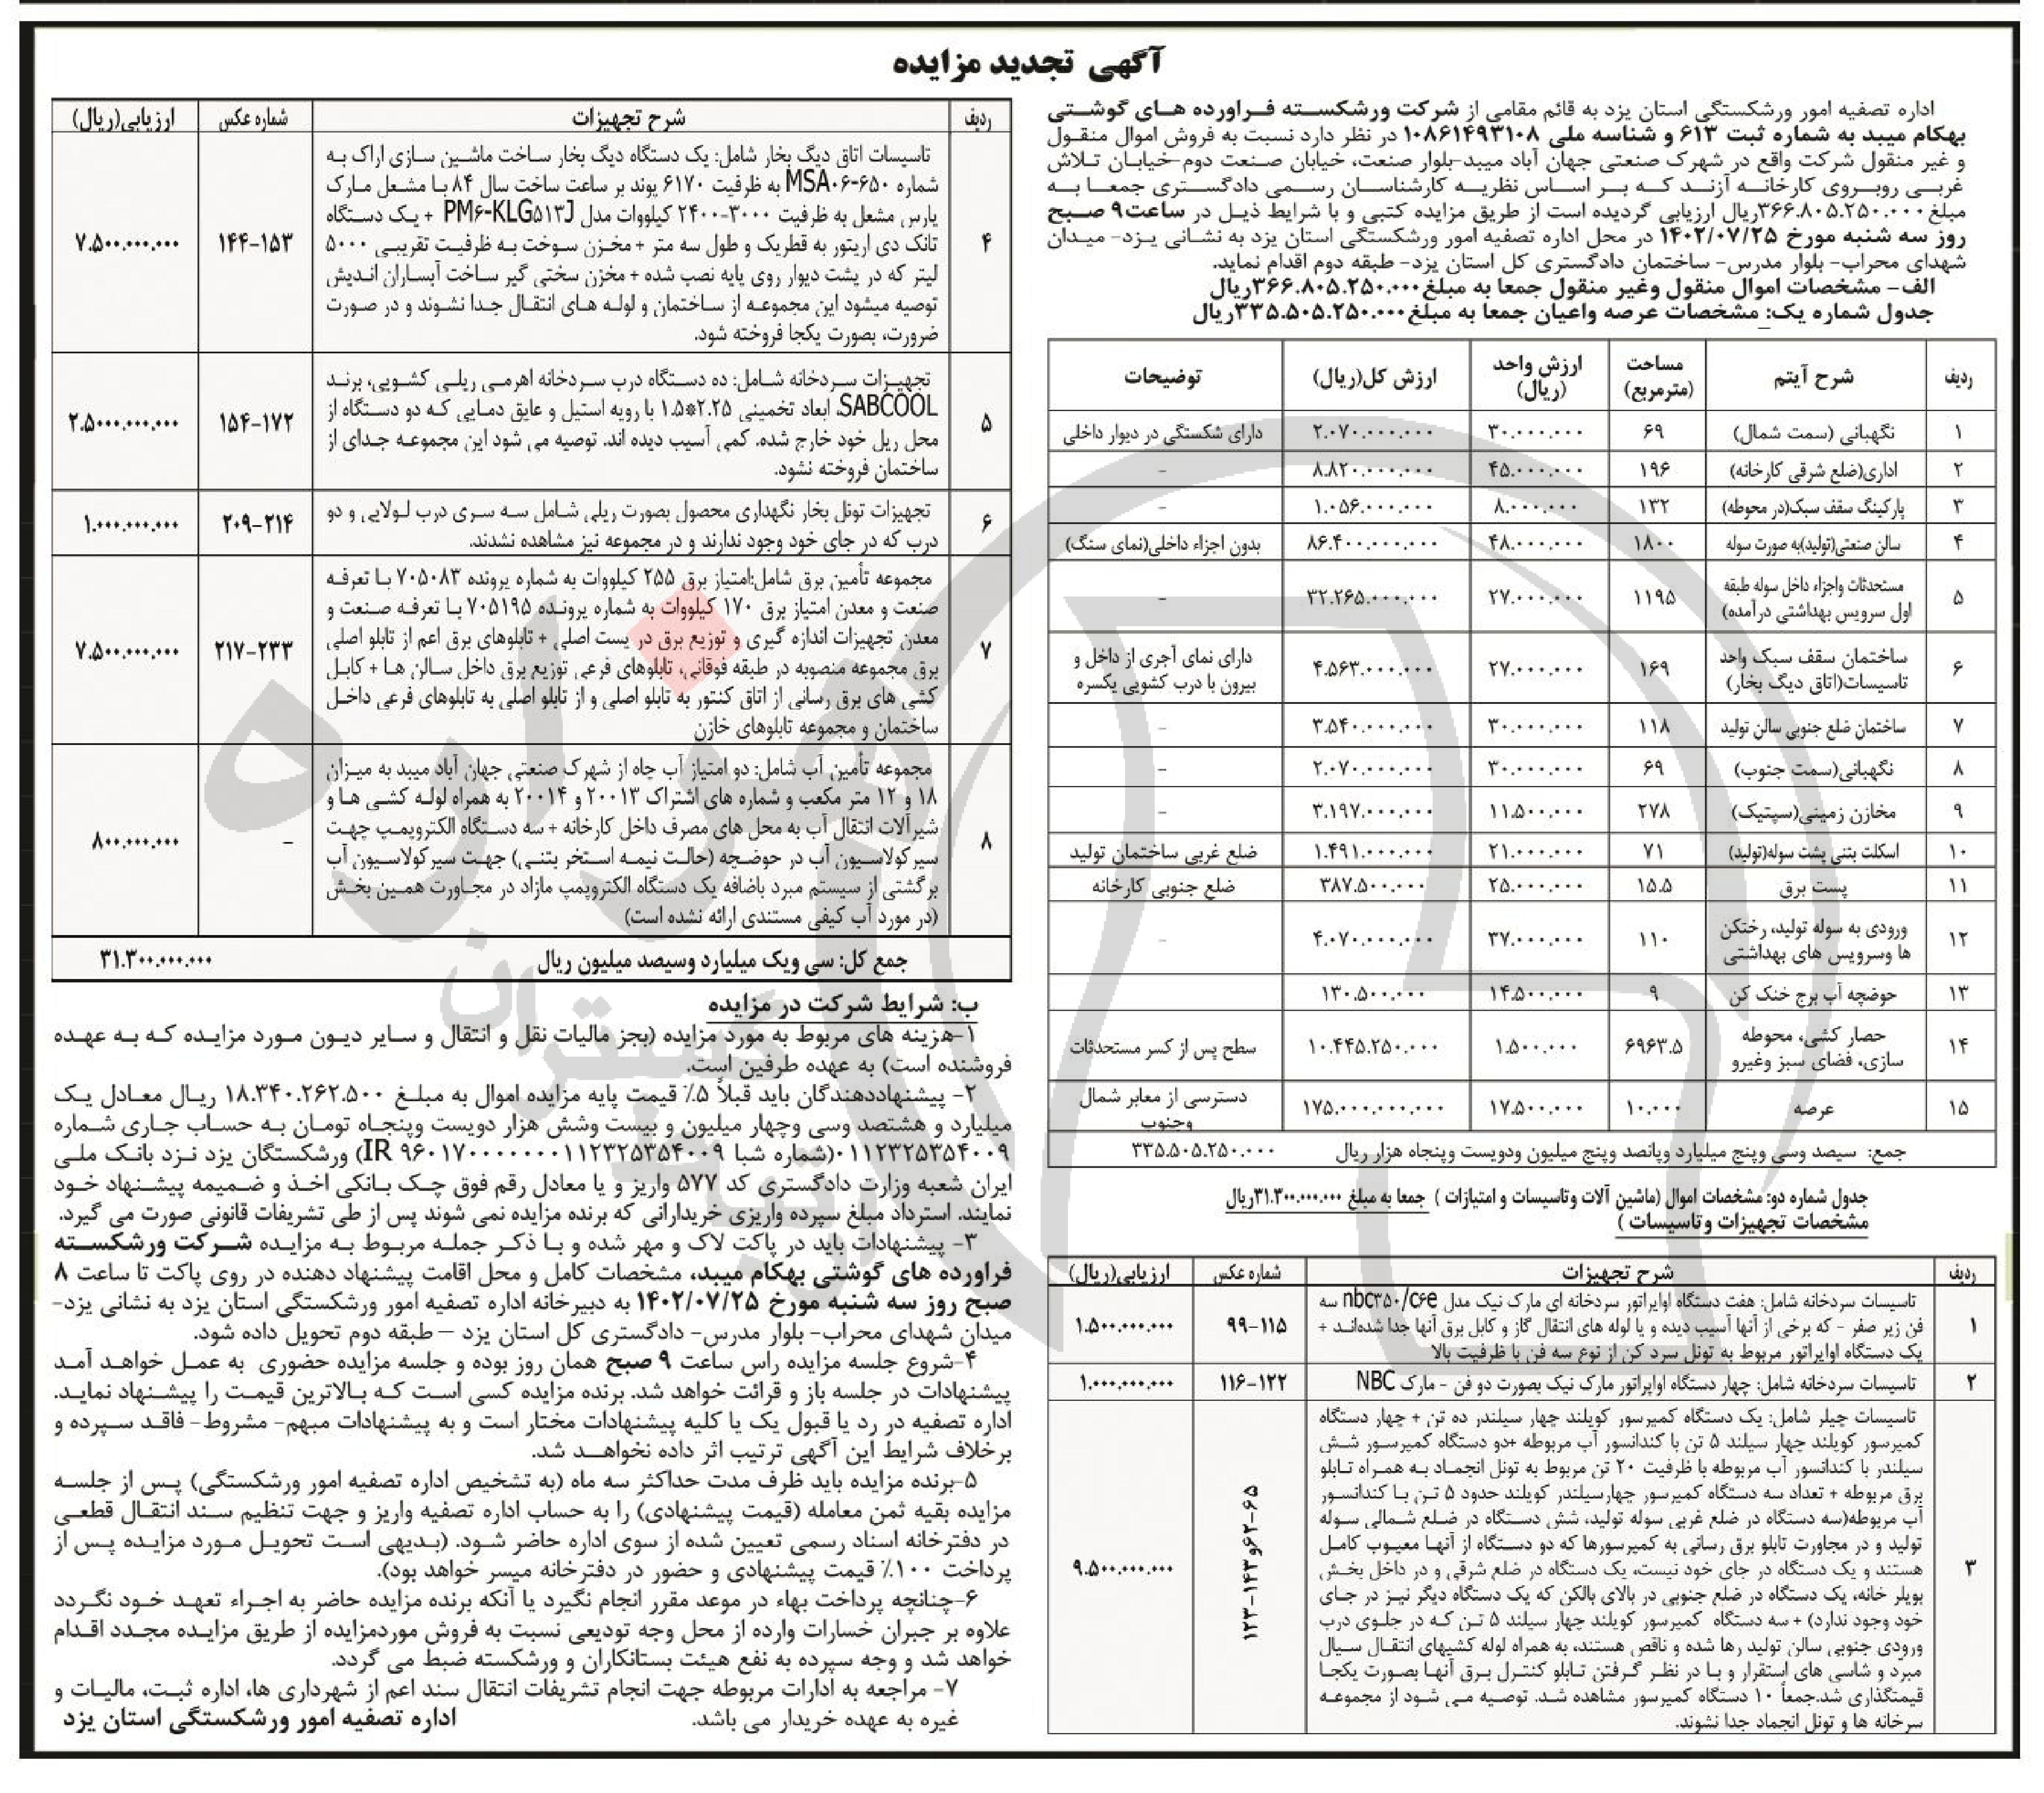 آگهی تجدید مزایده
اداره تصفیه امور ورشکستگی استان یزد به قائم مقامی از شرکت ورشکسته فراورده های گوشتی
بهکام میبد به شماره ثبت ۶۱۳ و شناسه ملی ۱۰۸۶۱۴۹۳۱۰۸ در نظر دارد نسبت به فروش اموال منقول
و غیر منقول شرکت واقع در شهرک صنعتی جهان آباد میبد-بلوار صنعت، خیابان صنعت دوم-خیابان تلاش
غربی روبروی کارخانه آزند که بر اساس نظریه کارشناسان رسمی دادگستری جمعا به
مبلغ۳۶۶.۸۰۵.۲۵۰.۰۰۰ریال ارزیابی گردیده است از طریق مزایده کتبی و با شرایط ذیل در ساعت۹ صبح
روز سه شنبه مورخ ۱۴۰۲/۰۷/۲۵ در محل اداره تصفیه امور ورشکستگی استان یزد به نشانی یزد- میدان
شهدای محراب- بلوار مدرس- ساختمان دادگستری کل استان یزد- طبقه دوم اقدام نماید.
الف- مشخصات اموال منقول وغیر منقول جمعا به مبلغ۳۶۶.۸۰۵.۲۵۰.۰۰۰ریال
جدول شماره یک: مشخصات عرصه واعیان جمعا به مبلغ۳۳۵.۵۰۵.۲۵۰.۰۰۰ریال
ردیف شرح آیتم مساحت (مترمربع) ارزش واحد (ریال) ارزش کل(ریال) توضیحات
۱ نگهبانی (سمت شمال) ۶۹ ۳۰.۰۰۰.۰۰۰ ۲.۰۷۰.۰۰۰.۰۰۰ دارای شکستگی در دیوار داخلی
۲ اداری(ضلع شرقی کارخانه) ۱۹۶ ۴۵.۰۰۰.۰۰۰ ۸.۸۲۰.۰۰۰.۰۰۰ -
۳ پارکینگ سقف سبک(در محوطه) ۱۳۲ ۸.۰۰۰.۰۰۰ ۱.۰۵۶.۰۰۰.۰۰۰ -
۴ سالن صنعتی(تولید)به صورت سوله ۱۸۰۰ ۴۸.۰۰۰.۰۰۰ ۸۶.۴۰۰.۰۰۰.۰۰۰ بدون اجزاء داخلی(نمای سنگ)
۵ مستحدثات واجزاء داخل سوله طبقه اول سرویس بهداشتی درآمده) ۱۱۹۵ ۲۷.۰۰۰.۰۰۰ ۳۲.۲۶۵.۰۰۰.۰۰۰ -
۶ ساختمان سقف سبک واحد تاسیسات(اتاق دیگ بخار) ۱۶۹ ۲۷.۰۰۰.۰۰۰ ۴.۵۶۳.۰۰۰.۰۰۰ دارای نمای آجری از داخل و بیرون با درب کشویی یکسره
۷ ساختمان ضلع جنوبی سالن تولید ۱۱۸ ۳۰.۰۰۰.۰۰۰ ۳.۵۴۰.۰۰۰.۰۰۰ -
۸ نگهبانی(سمت جنوب) ۶۹ ۳۰.۰۰۰.۰۰۰ ۲.۰۷۰.۰۰۰.۰۰۰ -
۹ مخازن زمینی(سپتیک) ۲۷۸ ۱۱.۵۰۰.۰۰۰ ۳.۱۹۷.۰۰۰.۰۰۰ -
۱۰ اسکلت بتنی پشت سوله(تولید) ۷۱ ۲۱.۰۰۰.۰۰۰ ۱.۴۹۱.۰۰۰.۰۰۰ ضلع غربی ساختمان تولید
۱۱ پست برق ۱۵.۵ ۲۵.۰۰۰.۰۰۰ ۳۸۷.۵۰۰.۰۰۰ ضلع جنوبی کارخانه
۱۲ ورودی به سوله تولید، رختکن ها وسرویس های بهداشتی ۱۱۰ ۳۷.۰۰۰.۰۰۰ ۴.۰۷۰.۰۰۰.۰۰۰ -
۱۳ حوضچه آب برج خنک کن ۹ ۱۴.۵۰۰.۰۰۰ ۱۳۰.۵۰۰.۰۰۰
۱۴ حصار کشی، محوطه سازی، فضای سبز وغیرو ۶۹۶۳.۵ ۱.۵۰۰.۰۰۰ ۱۰.۴۴۵.۲۵۰.۰۰۰ سطح پس از کسر مستحدثات
۱۵ عرصه ۱۰.۰۰۰ ۱۷.۵۰۰.۰۰۰ ۱۷۵.۰۰۰.۰۰۰.۰۰۰ دسترسی از معابر شمال وجنوب
جمع: سیصد وسی وپنج میلیارد وپانصد وپنج میلیون ودویست وپنجاه هزار ریال ۳۳۵.۵۰۵.۲۵۰.۰۰۰
جدول شماره دو: مشخصات اموال (ماشین آلات وتاسیسات و امتیازات ) جمعا به مبلغ ۳۱.۳۰۰.۰۰۰.۰۰۰ریال
مشخصات تجهیزات وتاسیسات )
ردیف شرح تجهیزات شماره عکس ارزیابی(ریال)
تاسیسات سردخانه شامل: هفت دستگاه اواپراتور سردخانه ای مارک نیک مدل nbc۳۵۰/c۶e سه
۱ فن زیر صفر - که برخی از آنها آسیب دیده و یا لوله های انتقال گاز و کابل برق آنها جدا شده‌اند + ۹۹-۱۱۵ ۱.۵۰۰.۰۰۰.۰۰۰
یک دستگاه اواپراتور مربوط به تونل سرد کن از نوع سه فن با ظرفیت بالا
۲ تاسیسات سردخانه شامل: چهار دستگاه اواپراتور مارک نیک بصورت دو فن - مارک NBC ۱۱۶-۱۲۲ ۱.۰۰۰.۰۰۰.۰۰۰
تاسیسات چیلر شامل: یک دستگاه کمپرسور کوپلند چهار سیلندر ده تن + چهار دستگاه
کمپرسور کوپلند چهار سیلند ۵ تن با کندانسور آب مربوطه +دو دستگاه کمپرسور شش
سیلندر با کندانسور آب مربوطه با ظرفیت ۲۰ تن مربوط به تونل انجماد به همراه تابلو
برق مربوطه + تعداد سه دستگاه کمپرسور چهارسیلندر کوپلند حدود ۵ تن با کندانسور
آب مربوطه(سه دستگاه در ضلع غربی سوله تولید، شش دستگاه در ضلع شمالی سوله
تولید و در مجاورت تابلو برق رسانی به کمپرسورها که دو دستگاه از آنها معیوب کامل
۳ هستند و یک دستگاه در جای خود نیست، یک دستگاه در ضلع شرقی و در داخل بخش ۶۲-۶۵و۱۲۳-۱۴۳ ۹.۵۰۰.۰۰۰.۰۰۰
بویلر خانه، یک دستگاه در ضلع جنوبی در بالای بالکن که یک دستگاه دیگر نیز در جای
خود وجود ندارد) + سه دستگاه کمپرسور کوپلند چهار سیلند ۵ تن که در جلوی درب
ورودی جنوبی سالن تولید رها شده و ناقص هستند، به همراه لوله کشیهای انتقال سیال
مبرد و شاسی های استقرار و با در نظر گرفتن تابلو کنترل برق آنها بصورت یکجا
قیمتگذاری شد.جمعاً ۱۰ دستگاه کمپرسور مشاهده شد. توصیه می شود از مجموعه
سرخانه ها و تونل انجماد جدا نشوند.
ردیف شرح تجهیزات شماره عکس ارزیابی(ریال)
تاسیسات اتاق دیگ بخار شامل: یک دستگاه دیگ بخار ساخت ماشین سازی اراک به
شماره MSA۰۶-۶۵۰ به ظرفیت ۶۱۷۰ پوند بر ساعت ساخت سال ۸۴ با مشعل مارک
پارس مشعل به ظرفیت ۳۰۰۰-۲۴۰۰ کیلووات مدل PM۶-KLG۵۱۳J + یک دستگاه
۴ تانک دی اریتور به قطریک و طول سه متر + مخزن سوخت به ظرفیت تقریبی ۵۰۰۰ ۱۴۴-۱۵۳ ۷.۵۰۰.۰۰۰.۰۰۰
لیتر که در پشت دیوار روی پایه نصب شده + مخزن سختی گیر ساخت آبساران اندیش
توصیه میشود این مجموعه از ساختمان و لوله های انتقال جدا نشوند و در صورت
ضرورت، بصورت یکجا فروخته شود.
تجهیزات سردخانه شامل: ده دستگاه درب سردخانه اهرمی ریلی کشویی، برند
۵ SABCOOL، ابعاد تخمینی ۲.۲۵*۱.۵ با رویه استیل و عایق دمایی که دو دستگاه از ۱۵۴-۱۷۲ ۲.۵۰۰.۰۰۰.۰۰۰
محل ریل خود خارج شده، کمی آسیب دیده اند. توصیه می شود این مجموعه جدای از
ساختمان فروخته نشود.
۶ تجهیزات تونل بخار نگهداری محصول بصورت ریلی شامل سه سری درب لولایی و دو ۲۰۹-۲۱۴ ۱.۰۰۰.۰۰۰.۰۰۰
درب که در جای خود وجود ندارند و در مجموعه نیز مشاهده نشدند.
مجموعه تأمین برق شامل:امتیاز برق ۲۵۵ کیلووات به شماره پرونده ۷۰۵۰۸۳ با تعرفه
صنعت و معدن امتیاز برق ۱۷۰ کیلووات به شماره پرونده ۷۰۵۱۹۵ با تعرفه صنعت و
معدن تجهیزات اندازه گیری و توزیع برق در پست اصلی + تابلوهای برق اعم از تابلو اصلی
۷ برق مجموعه منصوبه در طبقه فوقانی، تابلوهای فرعی توزیع برق داخل سالن ها + کابل ۲۱۷-۲۳۳ ۷.۵۰۰.۰۰۰.۰۰۰
کشی های برق رسانی از اتاق کنتور به تابلو اصلی و از تابلو اصلی به تابلوهای فرعی داخل
ساختمان و مجموعه تابلوهای خازن
مجموعه تأمین آب شامل: دو امتیاز آب چاه از شهرک صنعتی جهان آباد میبد به میزان
۱۸ و ۱۲ متر مکعب و شماره های اشتراک ۲۰۰۱۳ و ۲۰۰۱۴ به همراه لوله کشی ها و
شیرآلات انتقال آب به محل های مصرف داخل کارخانه + سه دستگاه الکتروپمپ جهت
۸ سیرکولاسیون آب در حوضچه (حالت نیمه استخر بتنی) جهت سیرکولاسیون آب - ۸۰۰.۰۰۰.۰۰۰
برگشتی از سیستم مبرد باضافه یک دستگاه الکتروپمپ مازاد در مجاورت همین بخش
(در مورد آب کیفی مستندی ارائه نشده است)
جمع کل: سی ویک میلیارد وسیصد میلیون ریال ۳۱.۳۰۰.۰۰۰.۰۰۰
ب: شرایط شرکت در مزایده
۱-هزینه های مربوط به مورد مزایده (بجز مالیات نقل و انتقال و سایر دیون مورد مزایده که به عهده
فروشنده است) به عهده طرفین است.
۲- پیشنهاددهندگان باید قبلاً ۵٪ قیمت پایه مزایده اموال به مبلغ ۱۸.۳۴۰.۲۶۲.۵۰۰ ریال معادل یک
میلیارد و هشتصد وسی وچهار میلیون و بیست وشش هزار دویست وپنجاه تومان به حساب جاری شماره
۰۱۱۲۳۲۵۳۵۴۰۰۹(شماره شبا IR ۹۶۰۱۷۰۰۰۰۰۰۰۱۱۲۳۲۵۳۵۴۰۰۹) ورشکستگان یزد نزد بانک ملی
ایران شعبه وزارت دادگستری کد ۵۷۷ واریز و یا معادل رقم فوق چک بانکی اخذ و ضمیمه پیشنهاد خود
نمایند. استرداد مبلغ سپرده واریزی خریدارانی که برنده مزایده نمی شوند پس از طی تشریفات قانونی صورت می گیرد.
۳- پیشنهادات باید در پاکت لاک و مهر شده و با ذکر جمله مربوط به مزایده شرکت ورشکسته
فراورده های گوشتی بهکام میبد، مشخصات کامل و محل اقامت پیشنهاد دهنده در روی پاکت تا ساعت ۸
صبح روز سه شنبه مورخ ۱۴۰۲/۰۷/۲۵ به دبیرخانه اداره تصفیه امور ورشکستگی استان یزد به نشانی یزد-
میدان شهدای محراب- بلوار مدرس- دادگستری کل استان یزد – طبقه دوم تحویل داده شود.
۴-شروع جلسه مزایده راس ساعت ۹ صبح همان روز بوده و جلسه مزایده حضوری به عمل خواهد آمد
پیشنهادات در جلسه باز و قرائت خواهد شد. برنده مزایده کسی است که بالاترین قیمت را پیشنهاد نماید.
اداره تصفیه در رد یا قبول یک یا کلیه پیشنهادات مختار است و به پیشنهادات مبهم- مشروط- فاقد سپرده و
برخلاف شرایط این آگهی ترتیب اثر داده نخواهد شد.
۵-برنده مزایده باید ظرف مدت حداکثر سه ماه (به تشخیص اداره تصفیه امور ورشکستگی) پس از جلسه
مزایده بقیه ثمن معامله (قیمت پیشنهادی) را به حساب اداره تصفیه واریز و جهت تنظیم سند انتقال قطعی
در دفترخانه اسناد رسمی تعیین شده از سوی اداره حاضر شود. (بدیهی است تحویل مورد مزایده پس از
پرداخت ۱۰۰٪ قیمت پیشنهادی و حضور در دفترخانه میسر خواهد بود).
۶-چنانچه پرداخت بهاء در موعد مقرر انجام نگیرد یا آنکه برنده مزایده حاضر به اجراء تعهد خود نگردد
علاوه بر جبران خسارات وارده از محل وجه تودیعی نسبت به فروش موردمزایده از طریق مزایده مجدد اقدام
خواهد شد و وجه سپرده به نفع هیئت بستانکاران و ورشکسته ضبط می گردد.
۷- مراجعه به ادارات مربوطه جهت انجام تشریفات انتقال سند اعم از شهرداری ها، اداره ثبت، مالیات و
غیره به عهده خریدار می باشد.
اداره تصفیه امور ورشکستگی استان یزد